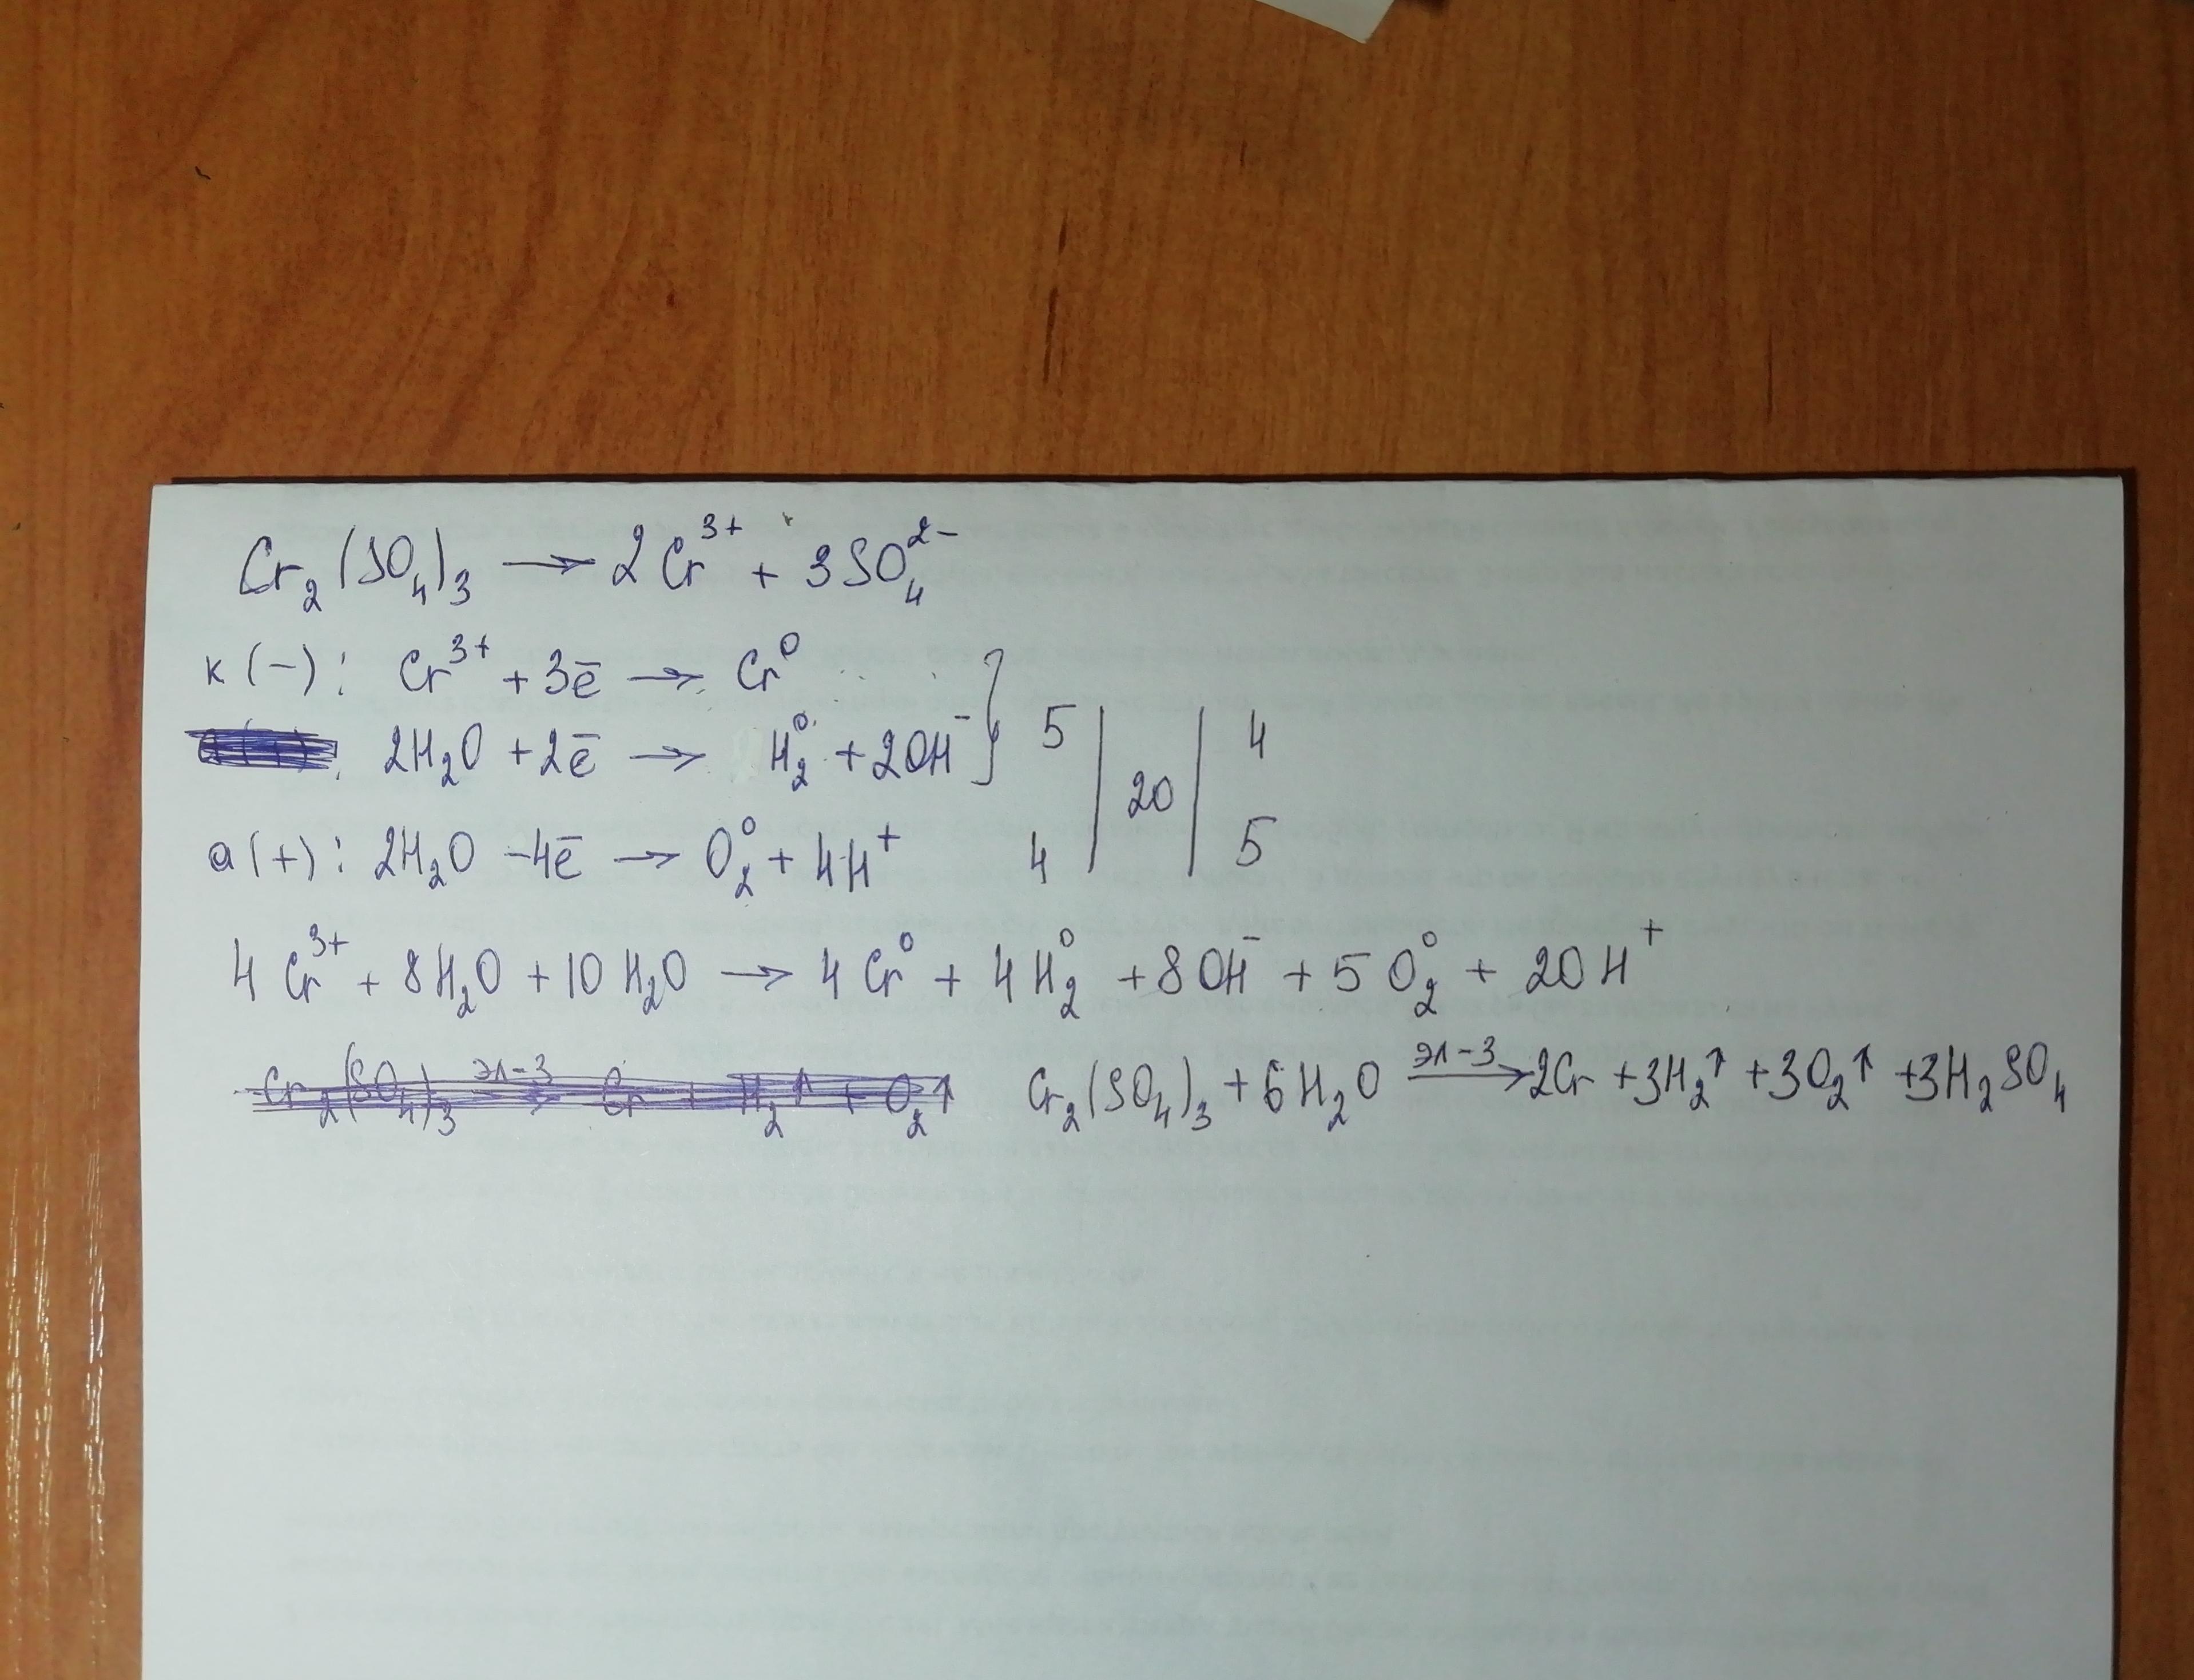 Cr₂(SO₄)₃ → 2Cr³⁺ + 3SO₄²⁻
к(-): Cr³⁺ + 3ē → Cr⁰
2H₂O + 2ē → H₂⁰ + 2OH⁻ } 5 | 20 | 4
a(+): 2H₂O - 4ē → O₂⁰ + 4H⁺ 4 | | 5
4Cr³⁺ + 8H₂O + 10H₂O → 4Cr⁰ + 4H₂⁰ + 8OH⁻ + 5O₂⁰ + 20H⁺
Cr₂(SO₄)₃ эл-з → Cr + H₂↑ + O₂↑ Cr₂(SO₄)₃ + 6H₂O эл-з → 2Cr + 3H₂↑ + 3O₂↑ + 3H₂SO₄